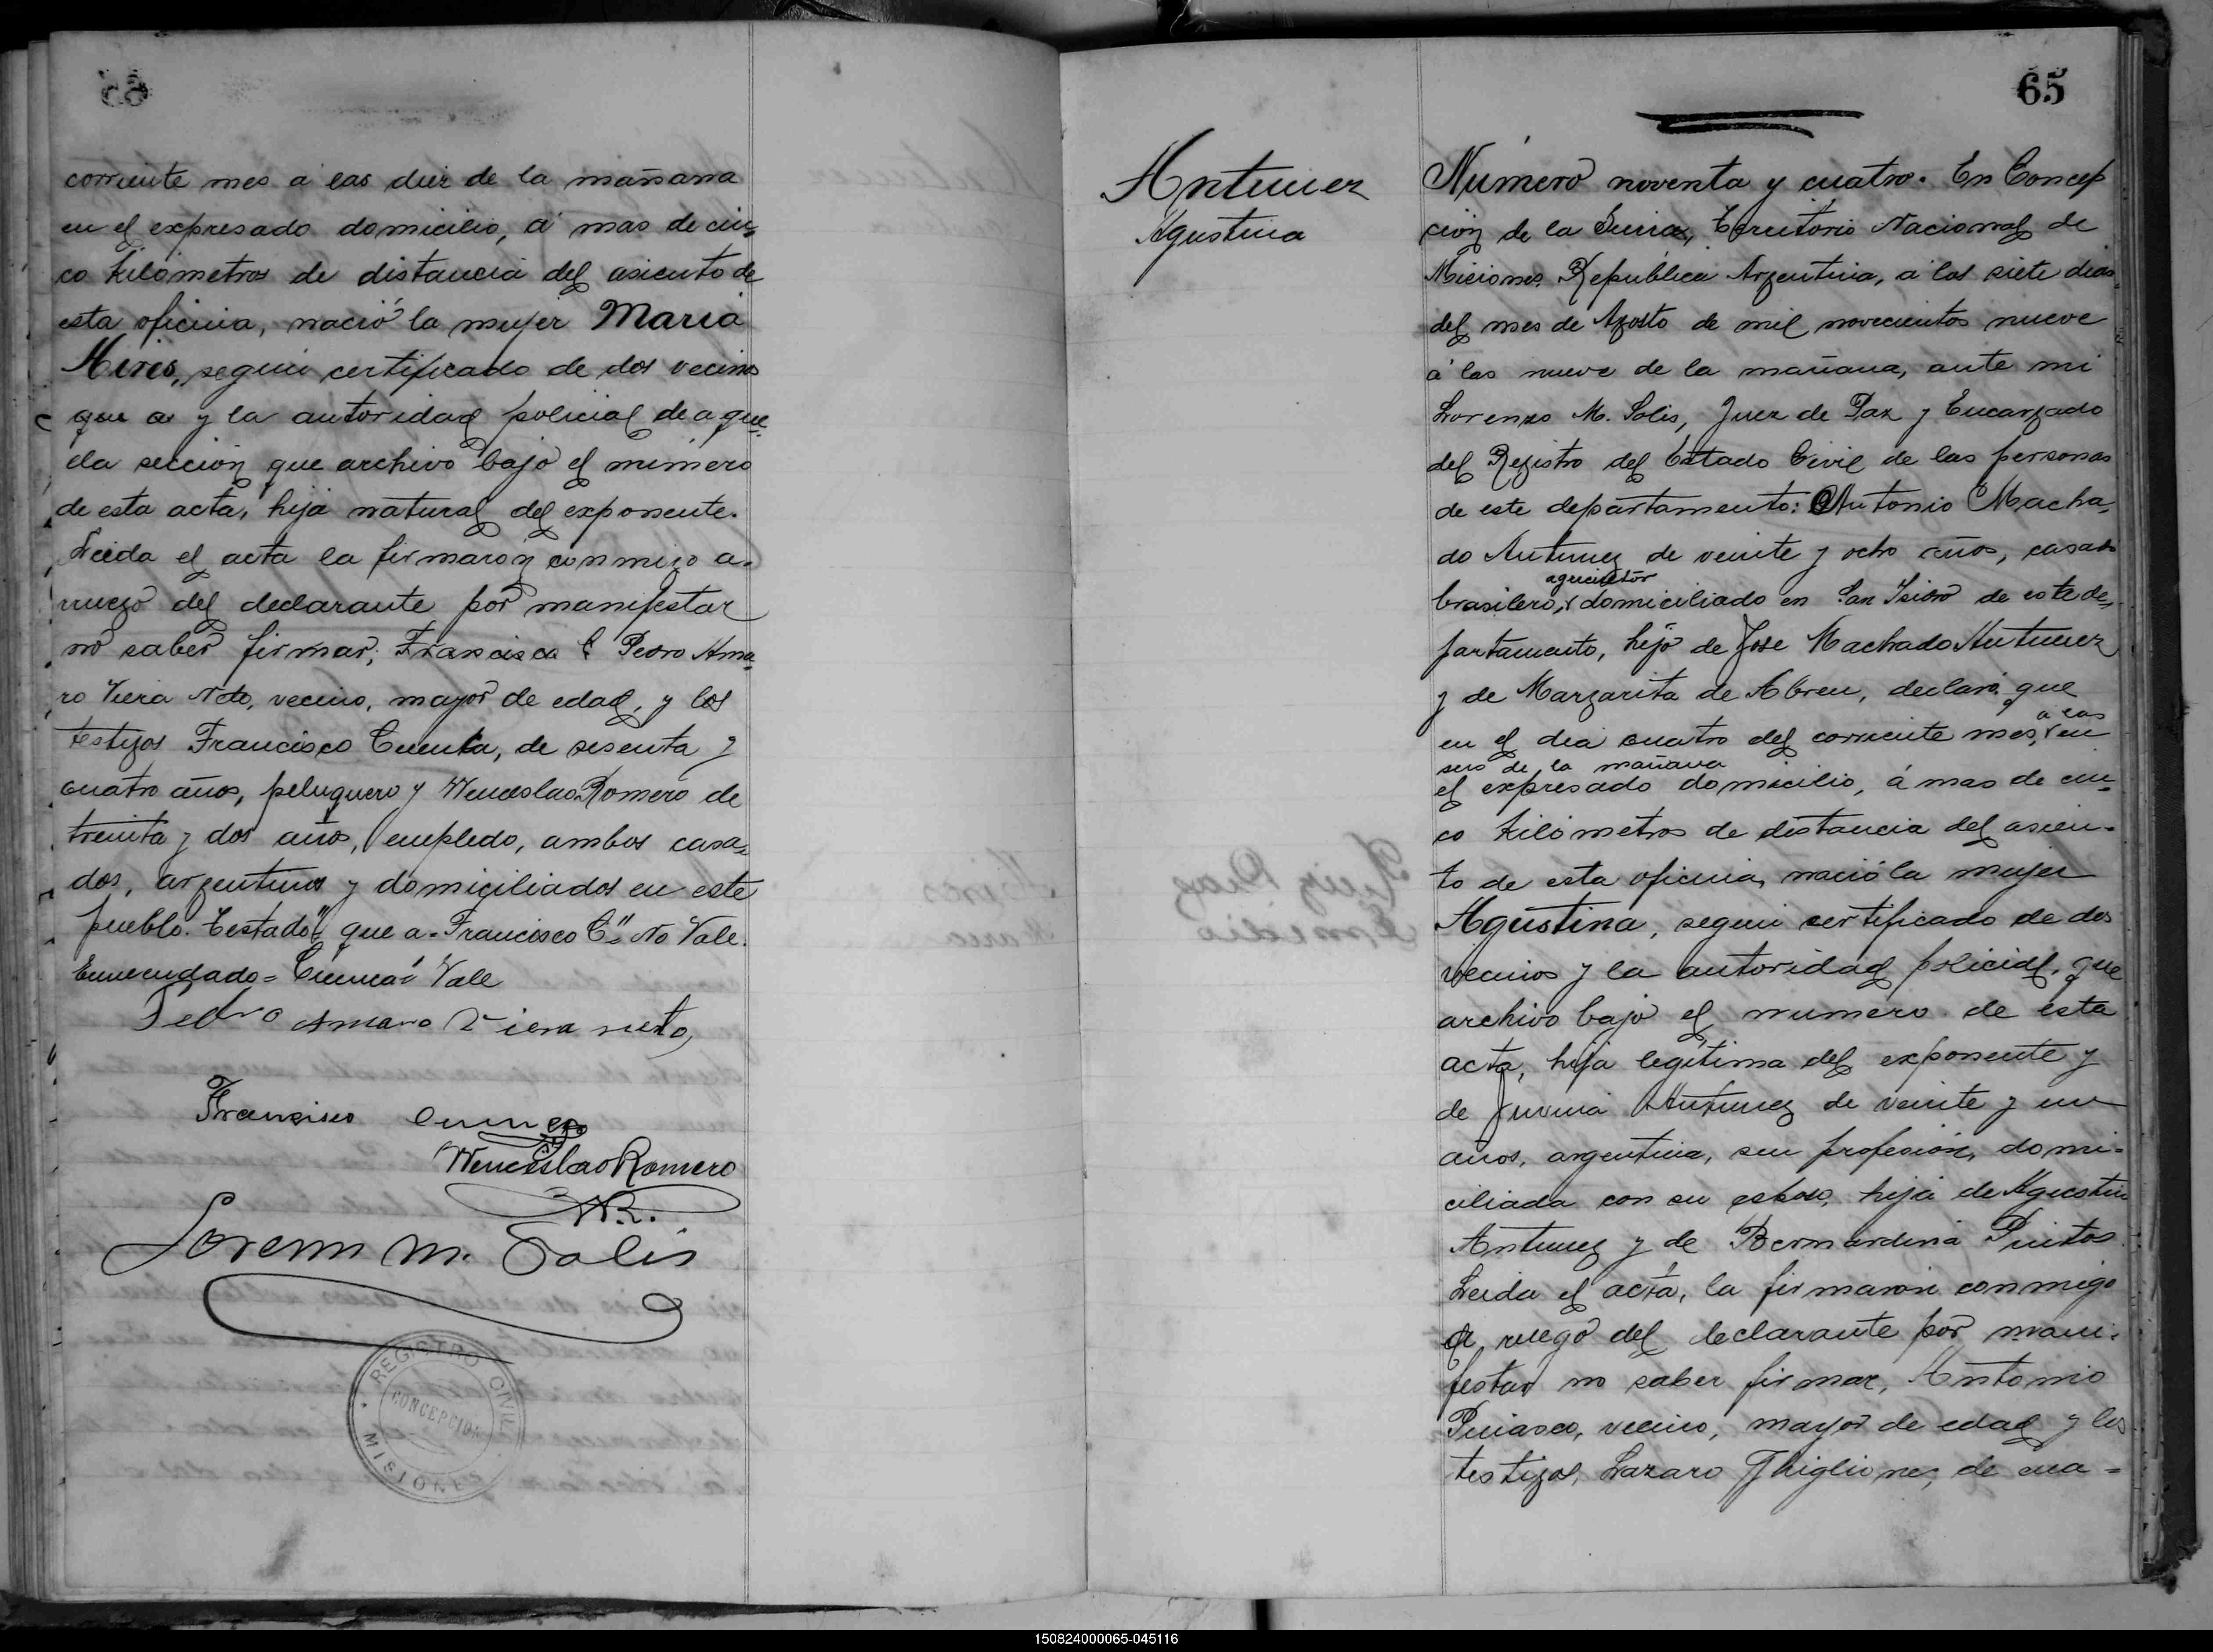 corriente mes á las diez de la mañana
en el expresado domicilio, á mas de cin
co kilómetros de distancia del asiento de
esta oficina, nació la mujer Maria
según certificado de dos vecinos
que a y la autoridad policial de aque
lla sección que archivo bajo el número
de esta acta, hija natural del exponente.
Leida el acta la firmaron conmigo a
ruego del declarante por manifestar
no saber firmar, Francisco C Pedro Ama
ro Viera Neto, vecino, mayor de edad, y los
testigos Francisco Cuenca, de sesenta y
cuatro años, peluquero y Wenceslao Romero de
treinta y dos años, empledo, ambos casa
dos, argentinos y domiciliados en este
pueblo. Testado "que a - Francisco C" No Vale.
Enmendado = Cuenca" Vale
Pedro Amaro Viera neto,
Francisco Cuenca
Wenceslao Romero
W.R.
Lorenzo M. Solis
REGISTRO CIVIL
CONCEPCION
MISIONES
65
Antunez
Agustina
Número noventa y cuatro. En Concep
ción de la Sierra, Territorio Nacional de
Misiones, República Argentina, á los siete dias
del mes de Agosto de mil novecientos nueve
á las nueve de la mañana, ante mi
Lorenzo M. Solis, Juez de Paz y Encargado
del Registro del Estado Civil de las personas
de este departamento: Antonio Macha
do Antunez de veinte y ocho años, casado
agricultor
brasilero, domiciliado en San Isidro de este de
partamento, hijo de José Machado Antunez
y de Margarita de Abreu, declaró que
a las
en el dia cuatro del corriente mes, en
seis de la mañana
el expresado domicilio, á mas de cin
co kilómetros de distancia del asien-
to de esta oficina, nació la mujer
Agustina, según certificado de dos
vecinos y la autoridad policial, que
archivo bajo el numero de esta
acta, hija legítima del exponente y
de Antunez de veinte y un
años, argentina, sin profesión, domi-
ciliada con su esposo, hija de Agustin
Antunez y de Bernardina Pintos.
Leida el acta, la firmaron conmigo
a ruego del declarante por mani-
festar no saber firmar, Antonio
vecino, mayor de edad y los
testigos, Lazaro Ghiglione, de cua=
150824000065-045116